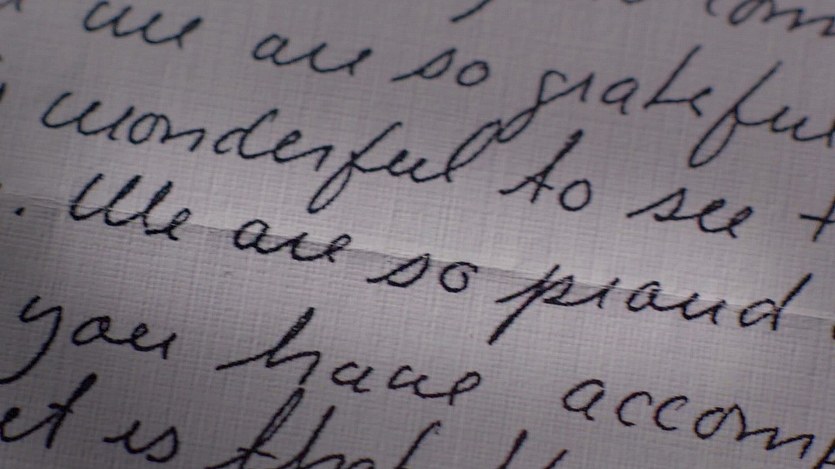 we are so grateful
wonderful to see
. We are so proud
you have accom
et is that